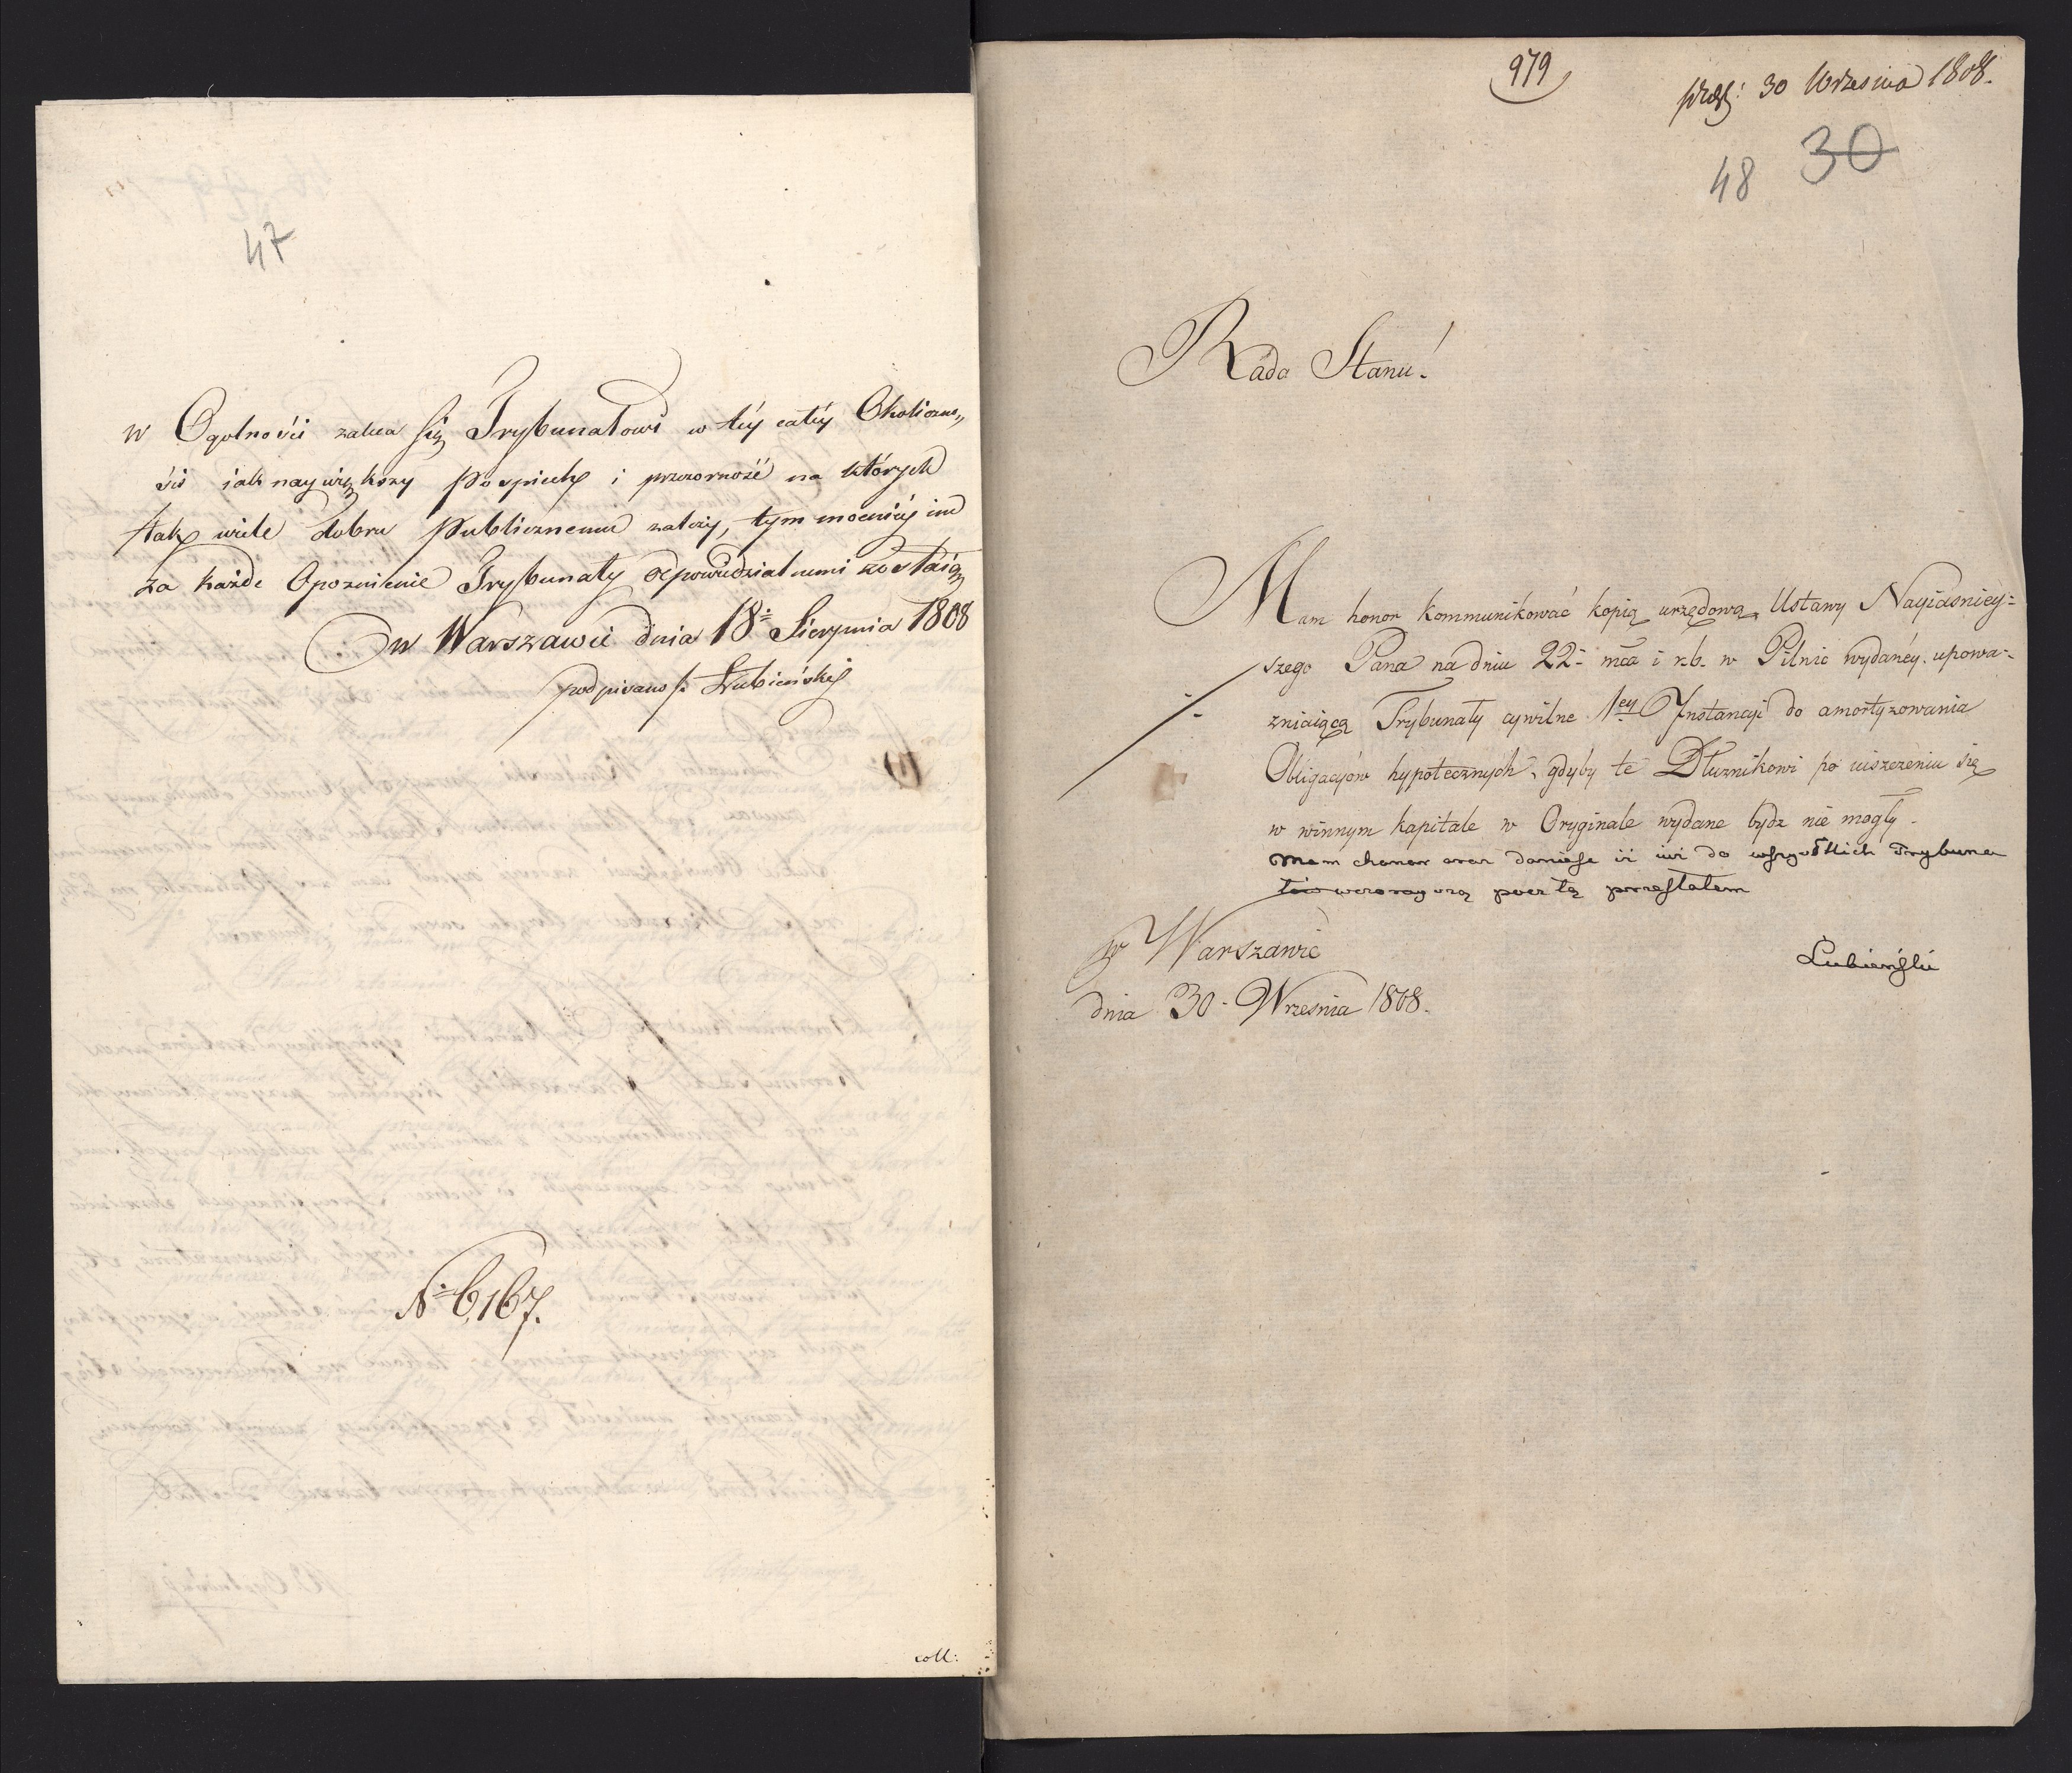 47
w Ogolności zaleca się Trybunałowi w téy całéy Okoliczno„
ści iak naywiększy Pospiech i przezorność na których
tak wiele dobru Publicznemu zależy, tym mocniéy ind
za każde Opoznienie Trybunały odpowiedzialnemi zostaią
w Warszawie dnia 18 Sierpnia 1808
podpisano /: Łubieński
N. 6,167.
coll:
979
praes: 30 Wrzesnia 1808.
48 30
Rada Stanu!
Mam honor kommunikować kopią urzędową Ustawy Nayiasniey=
szego Pana na dniu 22 mca i r.b. w Pilnic wydanéy. upowa=
zniaiącą Trybunały cywilne 1ey Instancyi do amortyzowania
Obligacyów hypotecznych, gdyby te Dłuznikowi po uiszczeniu się
w winnym kapitale w Oryginale wydane bydz nie mogły.
Mam chonor oraz doniesc iż iuż do wszystkich Trybuna
łów wczorayszą pocztą przesłałem
w Warszawie
Łubieński
dnia 30 Wrzesnia 1808.